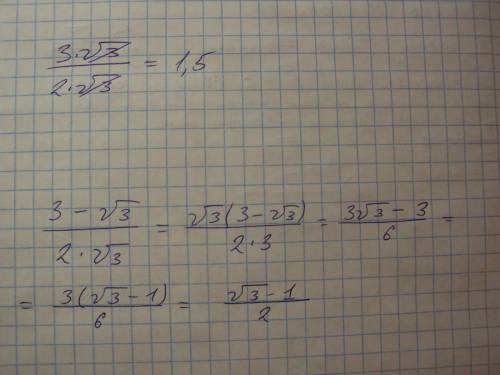 3·√3 / 2·√3 = 1,5
3 - √3 / 2·√3 = √3(3 - √3) / 2·3 = 3√3 - 3 / 6 =
= 3(√3 - 1) / 6 = √3 - 1 / 2